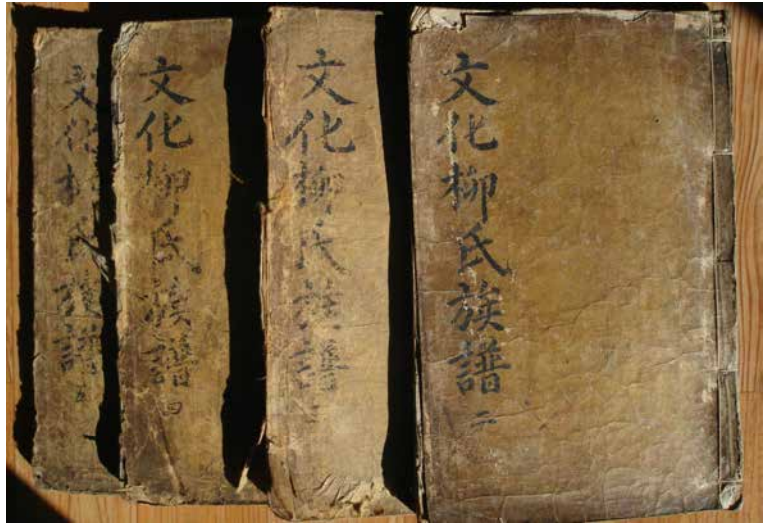 文化柳氏族譜 二
文化柳氏族譜 三
文化柳氏族譜 四
文化柳氏族譜 五